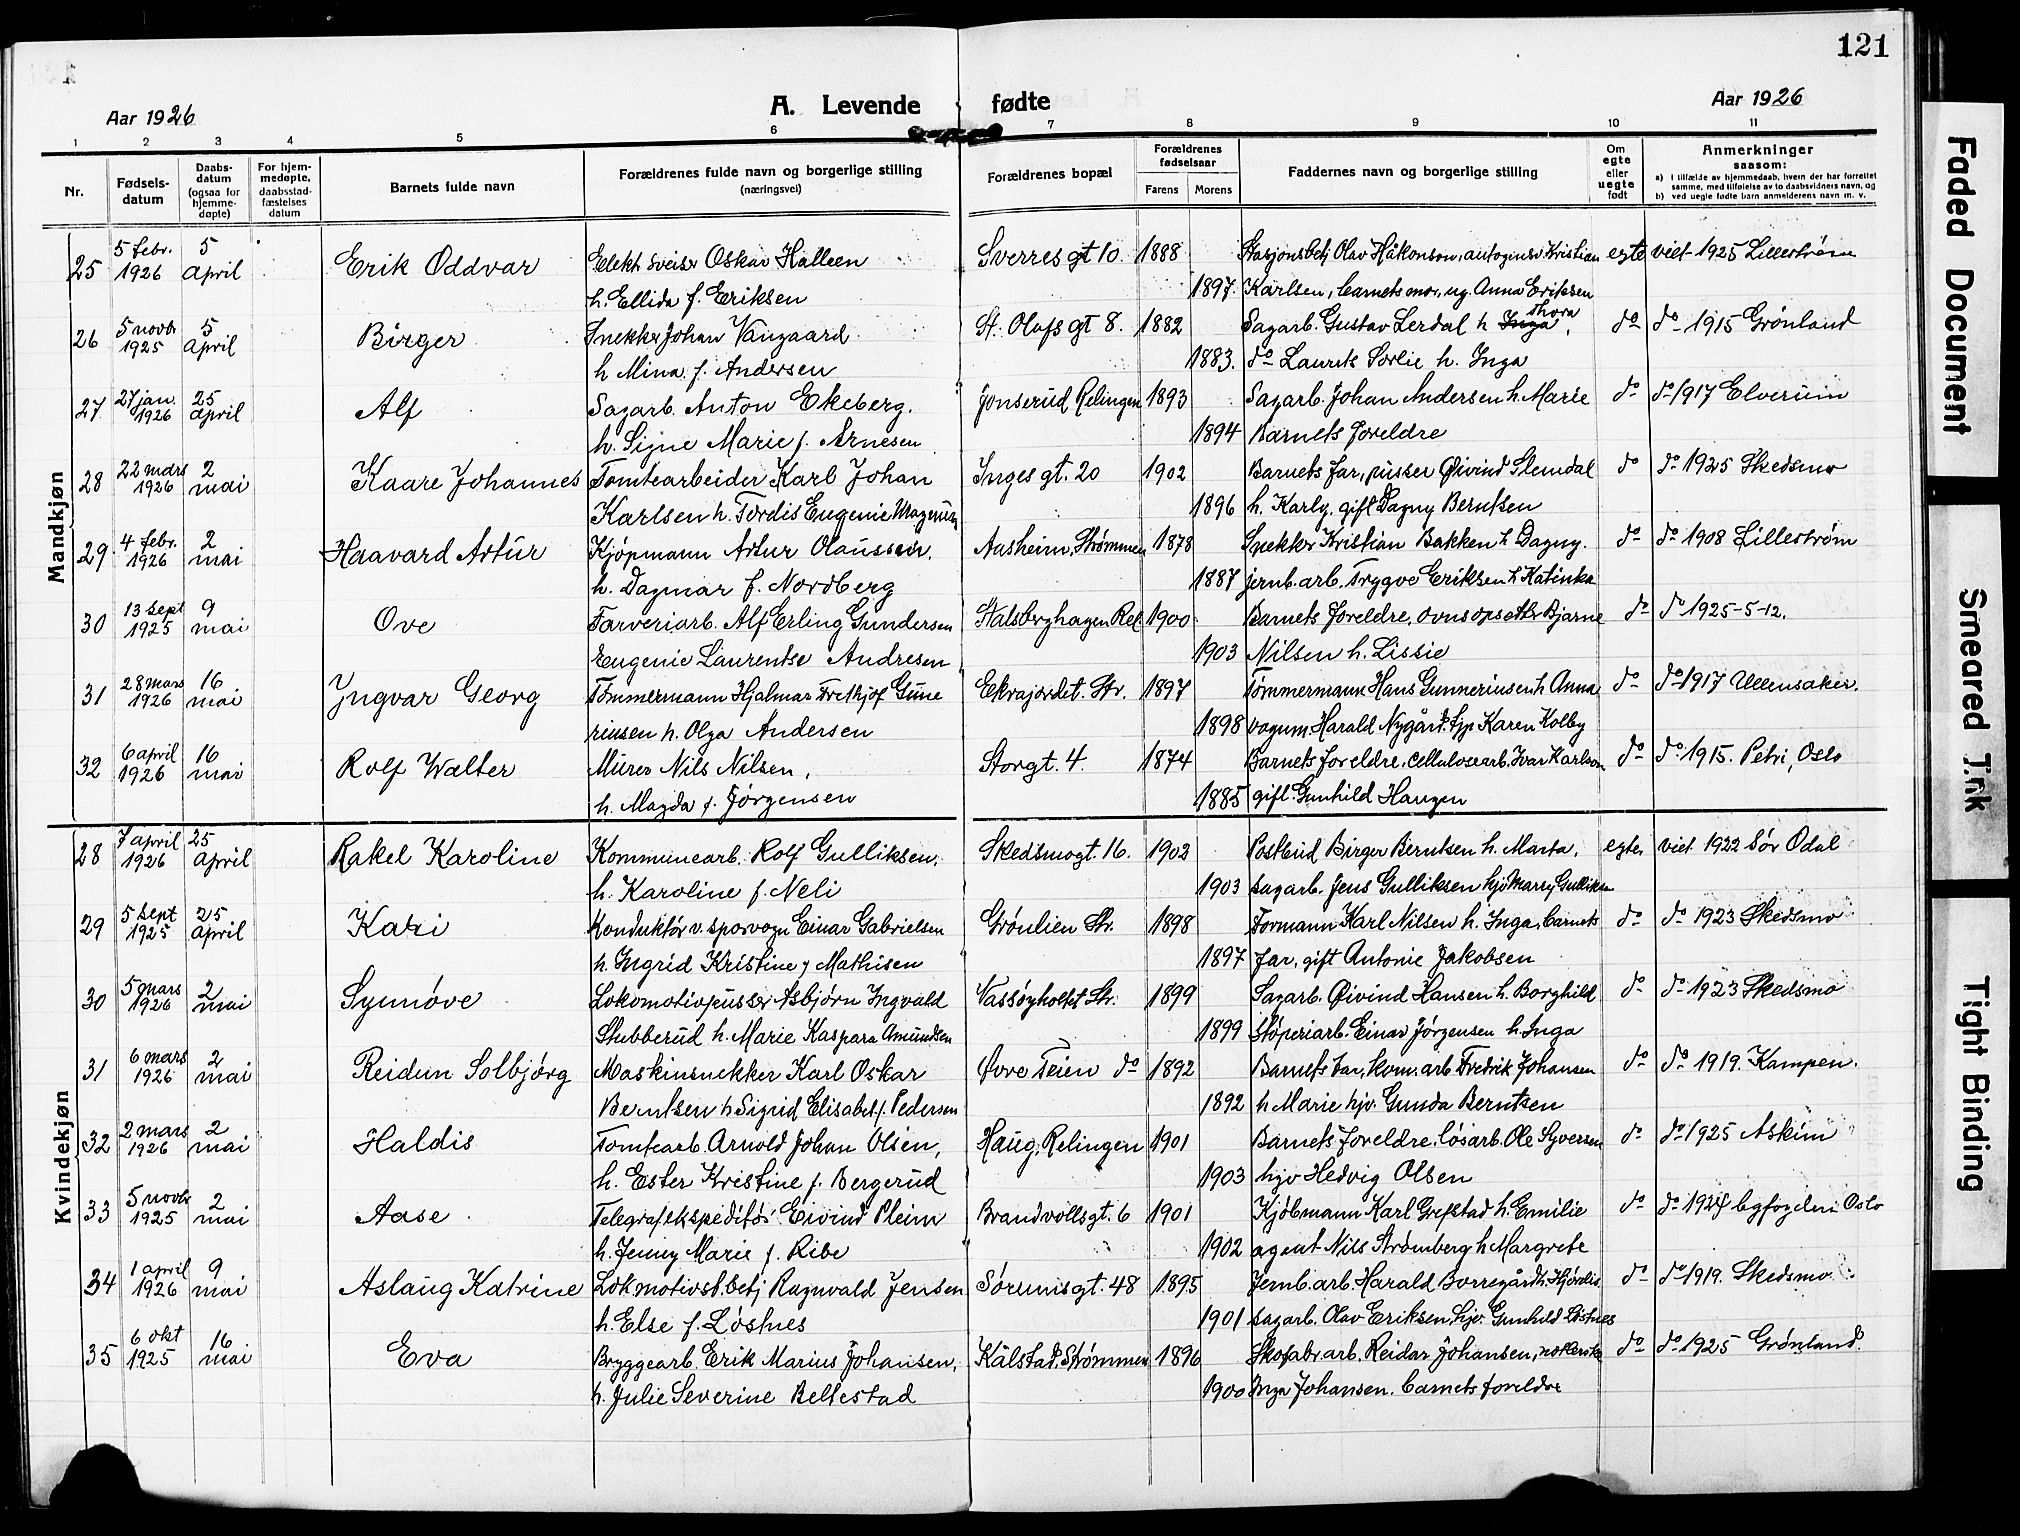 121
Aar 1926
A. Levende fødte
Aar 1926
1 2 3 4 5 6 7 8 9 10 11
Nr.
Fødsels-
datum
Daabs-
datum
(ogsaa for
hjemme-
døpte)
For hjem-
medøpte,
daabsstad-
fæstelses
datum
Barnets fulde navn
Forældrenes fulde navn og borgerlige stilling
(næringsvei)
Forældrenes bopæl
Forældrenes
fødselsaar
Farens Morens
Faddernes navn og borgerlige stilling
Om
egte
eller
uegte
født
Anmerkninger
saasom:
a) i tilfælde av hjemmedaab, hvem der har forrettet
samme, med tilføielse av to daabsvidners navn, og
b) ved uegte fødte barn anmelderens navn m. v.
Mandkjøn
25 5 febr. 1926 5 april Erik Oddvar Elekt. sveiser Oskar Halleen Sverresgt 10. 1888 Stasjonsbetj Olav Håkonson, Kristian egte viet 1925 Lillestrøm
h. Ellida f. Eriksen 1897. Karlsen, barnets mor, ug. Anna Eriksen
26 5 novbr 1925 5 april Birger Snekker Johan Vangaard St. Olafs gt 8. 1882 Sagarb. Gustav Lerdal h Inga Thora, do do 1915 Grønland
h Mina f. Andersen 1883. do Laurits Sørlie h. Inga
27 27 jan. 1926 25 april Alf Sagarb. Anton Ekeberg. Jonserud Relingen 1893 Sagarb. Johan Andersen h. Marie do do 1917 Elverum
h. Signe Marie f. Arnesen 1894 Barnets foreldre
28 22 mars 1926 2 mai Kaare Johannes Tomtearbeider Karl Johan Inges gt. 20 1902 Barnets far, pusser Øivind Slemdal do do 1925 Skedsmo
Karlsen h. Tordis Eugenie 1896 h. Karly. gift Dagny Berntsen
29 4 febr. 1926 2 mai Haavard Artur Kjøpmann Artur Olaussen, Aasheim, Strømmen 1878 Snekker Kristian Bakken h Dagny. do do 1908 Lillestrøm
h. Dagmar f. Nordberg 1887 jernb. arb. Trygve Eriksen h Katinka
30 13 sept 1925 9 mai Ove Farveriarb. Alf Erling Gundersen Stalsberghagen Rel 1900 Barnets foreldre, ovnsopsetter Bjarne do do 1925-5-12.
Eugenie Laurentse Andresen 1903 Nilsen h. Lissie
31 28 mars 1926 16 mai Yngvar Georg Tømmermann Hjalmar Fretkjof Gune Ekrajordet. Str. 1897 Tømmermann Hans Gunneriusen h Anna do do 1917 Ullensaker.
riusen h. Olga Andersen 1898 vognm Harald Nygård. Karen Kolby
32 6 april 1926 16 mai Rolf Walter Murer Nils Nilsen, Storgt. 4. 1874 Barnets foreldre, cellulosearb. Ivar Karlson do do 1915. Petri, Oslo
h. Magda f. Jørgensen 1885 gift. Gunhild Haugen
Kvindekjøn
28 7 april 1926 25 april Rakel Karoline Kommunearb. Rolf Gulliksen. Skedsmogt. 16. 1902 Postbud Birger Berntsen h. Marta, egte. viet 1922 Sør Odal
h. Karoline f. Neli 1903 sagarb. Jens Gulliksen hjv Marry Gulliksen
29 5 sept 1925 25 april Kari Konduktør v. sporvogn Einar Gabrielsen Grønlien Str. 1898 Formann Karl Nilsen h. Inga, barnets do do 1923 Skedsmo
h. Ingrid Kristine f Mathisen 1897 far, gift Antonie Jakobsen
30 5 mars 1926 2 mai Synnøve Lokomotivpusser Asbjørn Ingvald Vassøyholtet Str. 1899 Sagarb. Øivind Hansen h. Borghild do do 1923 Skedsmo
Stubberud h. Marie Kaspara Amundsen 1899 støperiarb. Einar Jørgensen h. Inga
31 6 mars 1926 2 mai Reidun Solbjørg Maskinsnekker Karl Oskar Øvre Teien do 1892 Barnets far, kom. arb Fredrik Johansen do do 1919. Kampen.
Berntsen h Sigrid Elisabet f. Pedersen 1892 h Marie hjv. Gunda Berntsen
32 2 mars 1926 2 mai Haldis Tomtearb. Arnold Johan Olsen, Haug, Relingen 1901 Barnets foreldre, løsarb. Ole Syversen do do 1925 Askim
h. Ester Kristine f. Bergerud 1903 hjv Hedvig Olsen
33 5 novbr 1925 2 mai Aase Telegrafekspeditør Eivind Pleim Brandvollsgt. 6 1901 Kjøbmann Karl Grefstad h. Emilie do do 1924 byfogden i Oslo
h. Jenny Marie f. Ribe 1902 agent Nils Strømberg h Margrete
34 1 april 1926 9 mai Aslaug Katrine Lokmotivst. betj Ragnvald Jensen Sørumsgt. 48 1895 Jernb. arb. Harald Borregård h. Hjørdis do do 1919. Skedsmo
h. Else f. Løstnes 1901 sagarb. Olav Eriksen, hjv. Gunhild Løstnes
35 6 okt 1925 16 mai Eva Bryggearb. Erik Marius Johansen, Kålstad. Strømmen 1896 Skofabr arb. Reidar Johansen, do do 1925 Grønland.
h. Julie Severine Beltestad 1900 Inga Johansen. barnets foreldre
Faded Document
Smeared Ink
Tight Binding